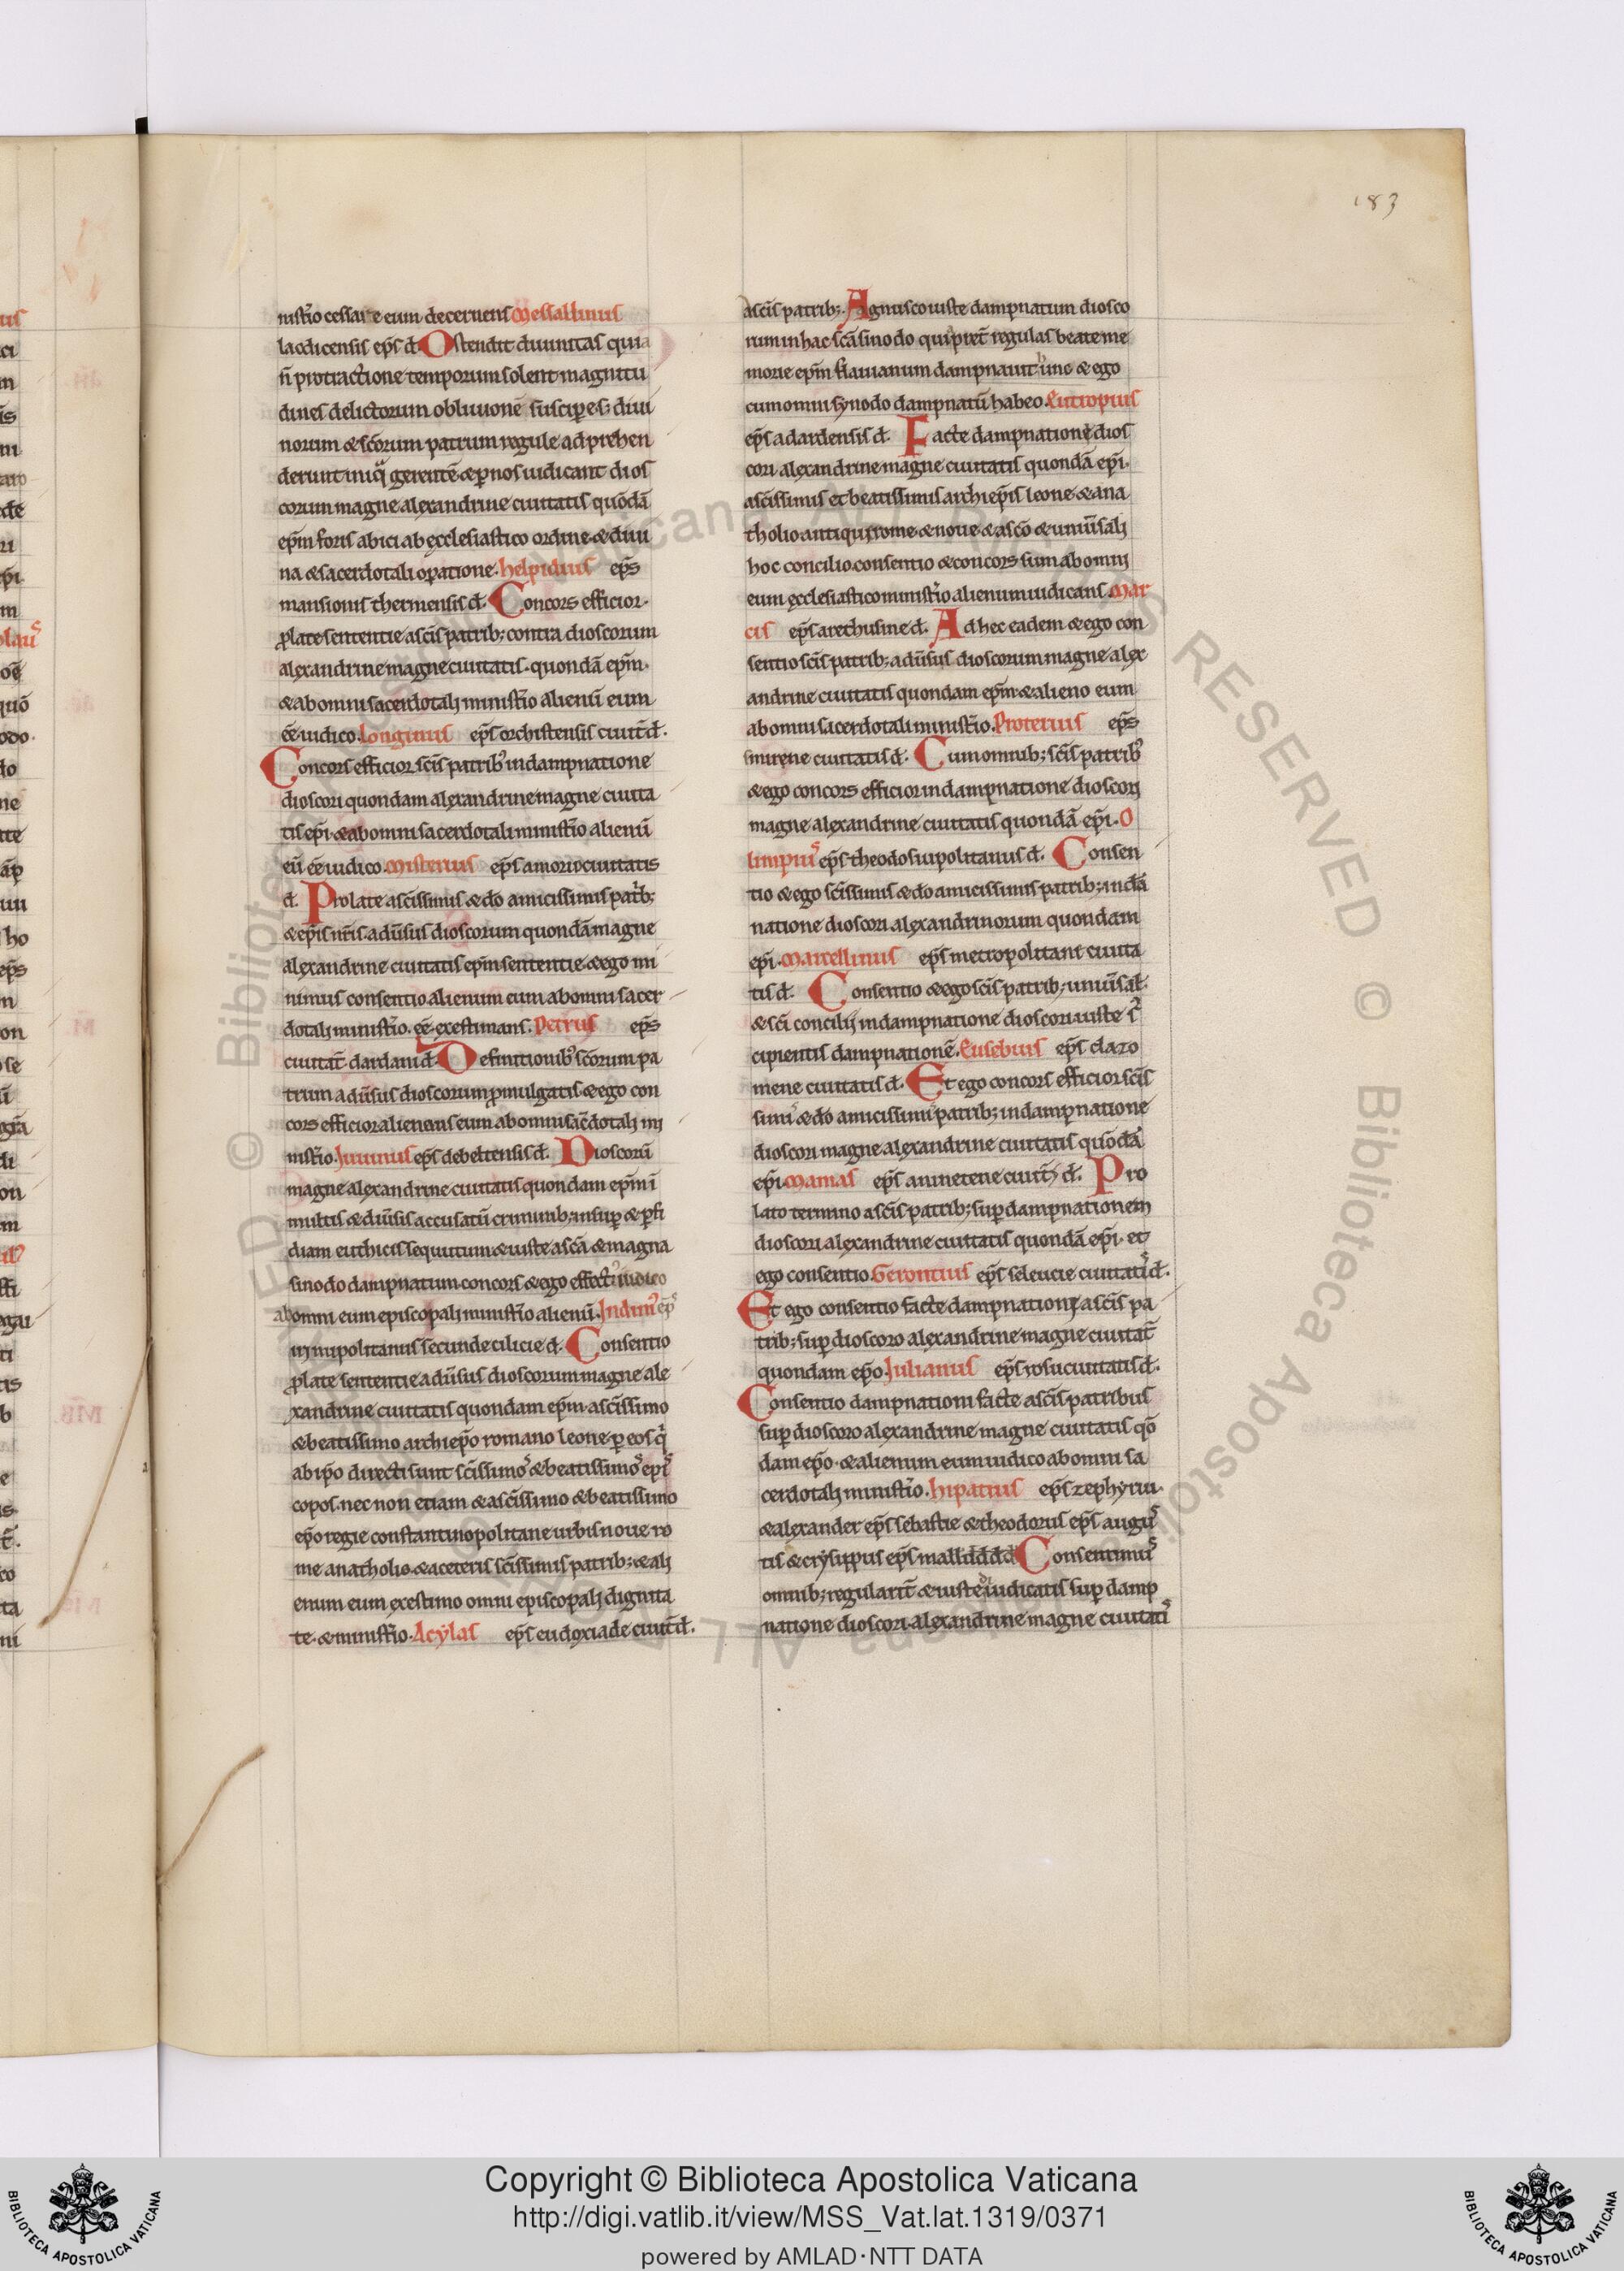 183
nistr̄o cessare eum decernens Messallinus
laodicensis ep̄s d̄. Ostendit diuinitas quia
n̄ protractione temporum solent magnitu
dines delictorum obliuionē suscipe s; diui
norum & sc̄orum patrum regule adprehen
derunt iniq̄ gerentē & p nos iudicant dios
corum magne alexandrine ciuitatis quōdā
ep̄m foris abici ab ecclesiastico ordine & diui
na & sacerdotali opatione. helpidius ep̄s
mansionis thermensis d̄. Concors efficior
plate sententie a sc̄is patrib; contra dioscorum
alexandrine magne ciuitatis. quondā ep̄m.
& ab omni sacerdotali ministr̄o alienū eum
eē iudico. Longinus ep̄s orchistensis ciuit̄ d̄.
Concors efficior sc̄is patrib' in dampnatione
dioscori quondam alexandrine magne ciuita
tis ep̄i. & ab omni sacerdotali ministr̄o alienū
eū eē iudico. Misterius ep̄s amorio ciuitatis
d̄. Prolate a sc̄issimis & do amicissimis patr̄b;
& ep̄is nr̄is. adūsus dioscorum quondā magne
alexandrine ciuitatis ep̄m sententie & ego mi
nimus consentio alienum eum ab omni sacer
dotali ministr̄o. eē exestimans. Petrus ep̄s
ciuitat̄ dardani d̄. Definitionib' sc̄orum pa
trum adūsus dioscorum pmulgatis & ego con
cors efficior alienans eum ab omni sac̄dotali mi
nistr̄o. Juuinus ep̄s debeltensis d̄. Dioscorū
magne alexandrine ciuitatis quondam ep̄m ī
multis & diūsis accusatū criminib; insup & pfi
diam euthicis sequutum & iuste a sc̄a & magna
sinodo dampnatum concors & ego effect' iudico
ab omni eum episcopali ministr̄o alienū. Indim' ep̄s
in nipolitanus secunde cilicie d̄. Consentio
plate sententie adūsus dioscorum magne ale
xandrine ciuitatis quondam ep̄m. a sc̄issimo
& beatissimo archiep̄o romano leone p eos q̄
ab ip̄o directi sunt sc̄issimos & beatissimos epis
copos. nec non etiam & a sc̄issimo & beatissimo
ep̄o regie constantinopolitane urbis noue ro
me anatholio. & a ceteris sc̄issimis patrib; & ali
enum eum existimo omni episcopali dignita
te. & ministr̄o. Acylas ep̄s eudoxiade ciuit̄ d̄.
a sc̄is patrib;. Agnusco iuste dampnatum diosco
rum in hac sc̄a sinodo qui pret̄ regulas beate me
morie ep̄m flauianum dampnauit. hunc & ego
cum omni synodo dampnatū habeo. Eutropius
ep̄s adardensis d̄. Facte dampnatione dios
cori alexandrine magne ciuitatis quondā ep̄i.
a sc̄issimis et beatissimis archiep̄is leone & ana
tholio antiquis rome & noue & a sc̄o & uniūsali
hoc concilio. consentio & concors sum ab omni
eum ecclesiastico ministr̄o alienum iudicans. Mar
cis ep̄s arethusine d̄. Ad hec eadem & ego con
sentio sc̄is patrib; adūsus dioscorum magne alex
andrine ciuitatis quondam ep̄m. & alieno eum
ab omni sacerdotali ministr̄o. Proterius ep̄s
smirene ciuitatis d̄. Cum omnib; sc̄is patrib'
& ego concors efficior in dampnatione dioscori
magne alexandrine ciuitatis quondā ep̄i. O
limpius ep̄s theodosiupolitanus d̄. Consen
tio & ego sc̄issimis & do amicissimis patrib; in dā
natione dioscori alexandrinorum quondam
ep̄i. Marcellinus ep̄s metropolitane ciuita
tis d̄. Consentio & ego sc̄is patrib; uniūsal.
& sc̄i concilii in dampnatione dioscori iuste s'
cipientis dampnationē. Eusebius ep̄s clazo
mene ciuitatis d̄. Et ego concors efficior sc̄is
simis & do amicissimis patrib; in dampnatione
dioscori magne alexandrine ciuitatis quōdā
ep̄i. Mamas ep̄s aninetene ciuit̄ d̄. Pro
lato termino a sc̄is patrib; sup dampnationem
dioscori alexandrine ciuitatis quondā ep̄i. et
ego consentio. Gerontius ep̄s seleucie ciuitatis d̄.
Et ego consentio facte dampnationi a sc̄is pa
trib; sup dioscoro alexandrine magne ciuitat̄
quondam ep̄o. Julianus ep̄s rosu ciuitatis d̄.
Consentio dampnationi facte a sc̄is patribus
sup dioscoro alexandrine magne ciuitatis qō
dam ep̄o. & alienum eum iudico ab omni sa
cerdotali ministr̄o. hipatius ep̄s zephyriu.
& alexander ep̄s sebastie & theodorus ep̄s augus
tis & crysippus ep̄s malli d̄d̄d̄d̄ Consentimus
omnib; regularit̄ & iuste iudicatis sup damp
natione dioscori. alexandrine magne ciuitatis
Copyright © Biblioteca Apostolica Vaticana
http://digi.vatlib.it/view/MSS_Vat.lat.1319/0371
powered by AMLAD·NTT DATA